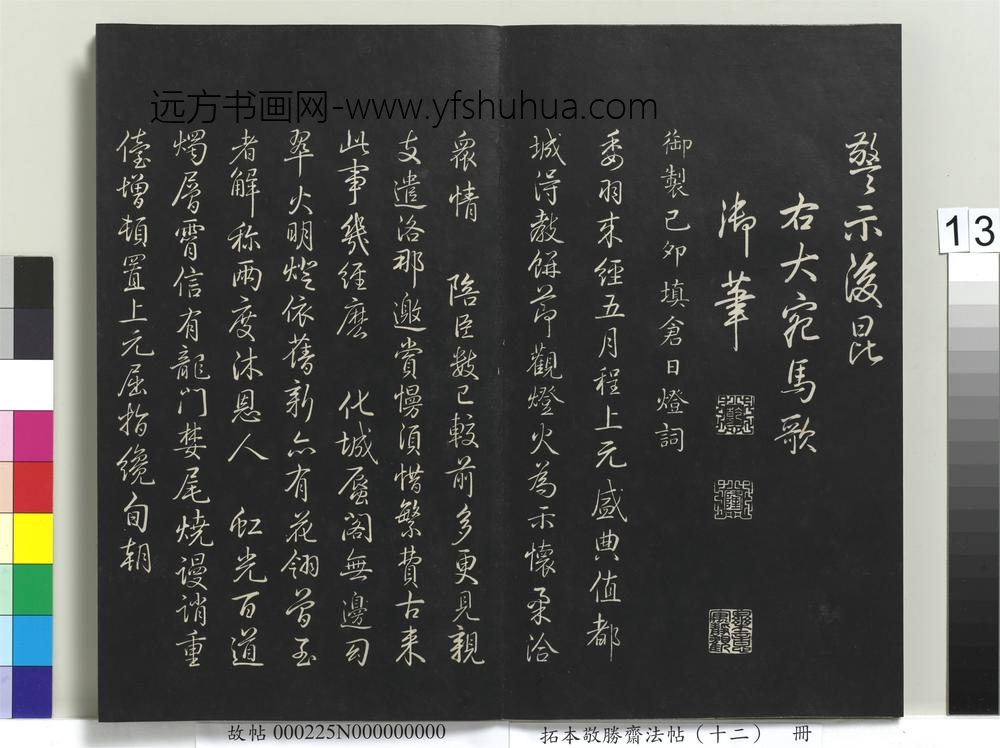 警示後昆
右大宛馬歌
御筆
御製己卯填倉日燈詞
委羽来經五月程上元盛典值都
城浮教餅節觀燈火為示懷柔洽
衆情 陪臣數已較前多更見親
支遣洛那邀賞慢須惜繁費古来
此事幾經麽 化城蜃閣無邊匃
翠火明燈依舊新亦有花翎曾至
者解称兩度沐恩人 虹光百道
燭層霄信有龍門婪尾燒謾誚重
儓增頓置上元屈指纔旬朝
远方书画网-www.yfshuhua.com
13
故帖 000225N000000000
拓本敬勝齋法帖（十二） 冊